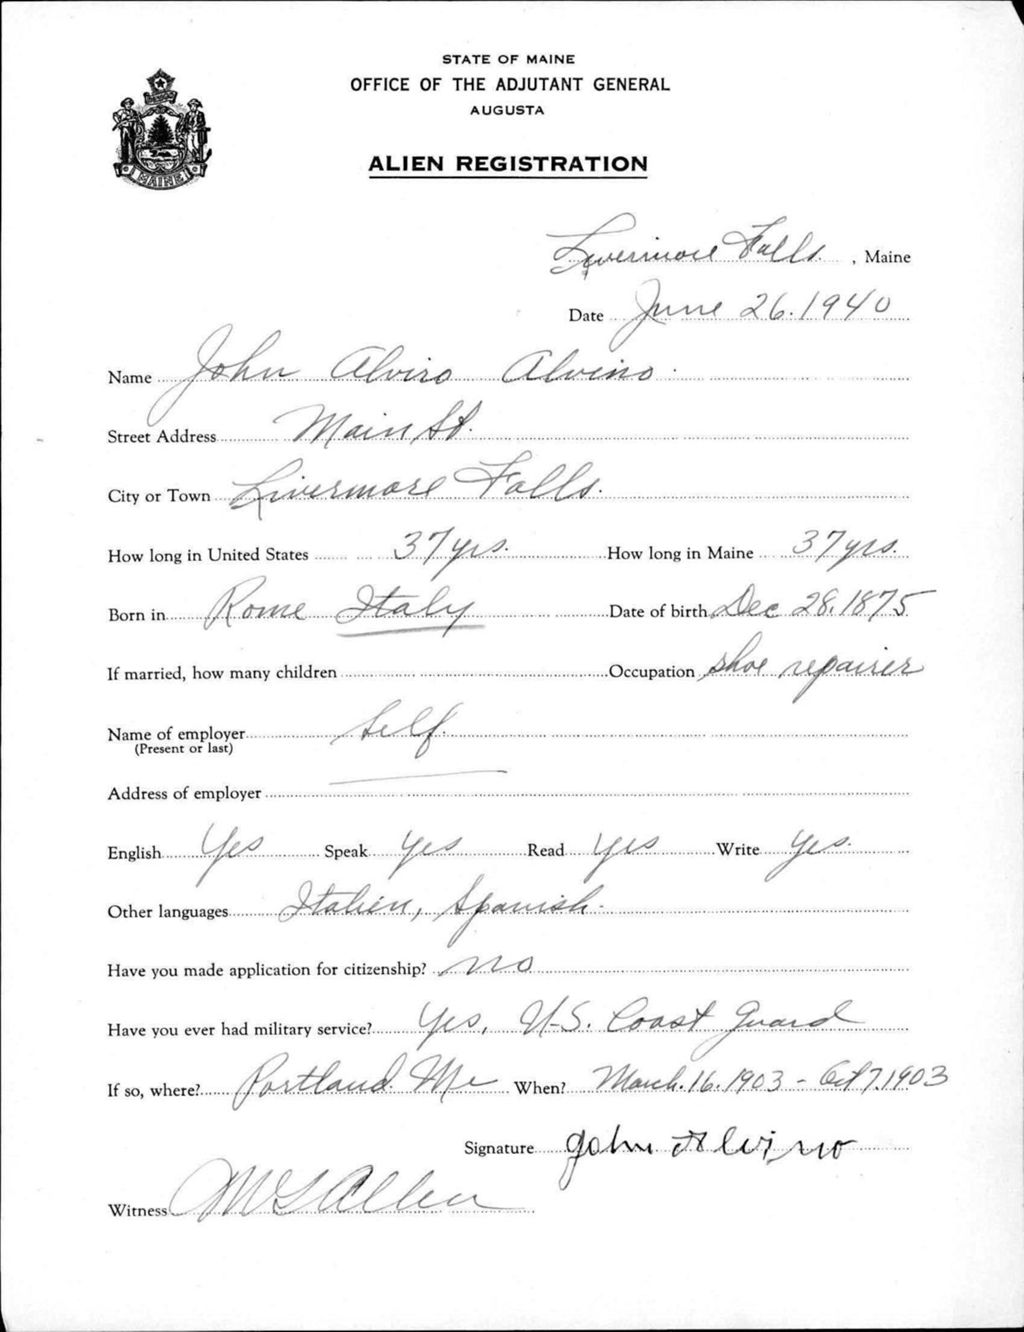 STATE OF MAINE
OFFICE OF THE ADJUTANT GENERAL
AUGUSTA
ALIEN REGISTRATION
MAINE
Livermore Falls, Maine
Date June 26.1940
Name John Alviro Alvino
Street Address Main St.
City or Town Livermore Falls.
How long in United States 37 yrs. How long in Maine 37 yrs.
Born in Rome Italy Date of birth Dec 28, 1875
If married, how many children Occupation shoe repairer
Name of employer Self.
(Present or last)
Address of employer
English Yes Speak yes Read yes Write yes.
Other languages Italien, Spanish.
Have you made application for citizenship? no
Have you ever had military service? Yes, U-S. Coast Guard
If so, where? Portland. Me When? March. 16. 1903 - Oct 7.1903
Signature John Alvino
Witness Allen